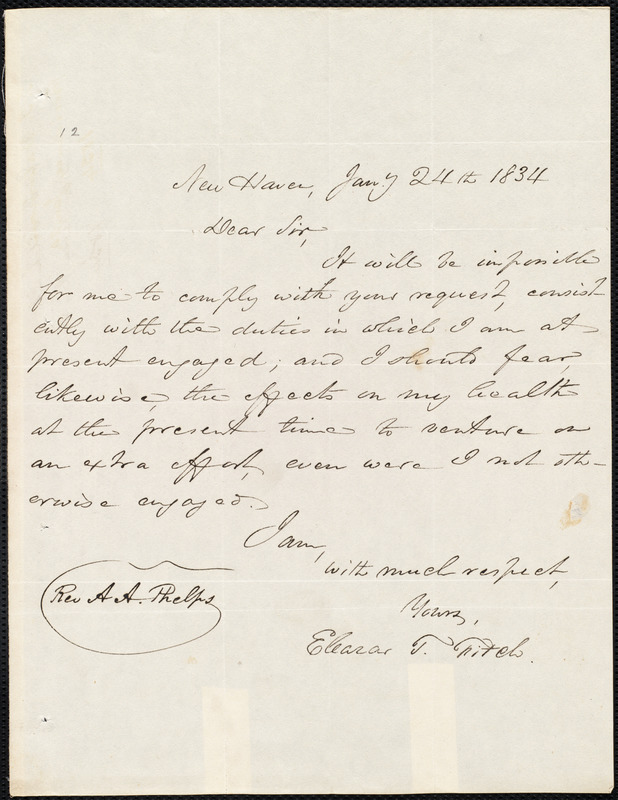 12
New Haven, Jany 24th 1834
Dear Sir,
It will be impossible
for me to comply with your request, consist
ently with the duties in which I am at
present engaged; and I should fear,
likewise, the effects on my health
at the present time to venture on
an extra effort, even were I not oth-
erwise engaged.
I am,
with much respect,
Yours,
Eleazar T. Fitch.
Rev A A. Phelps